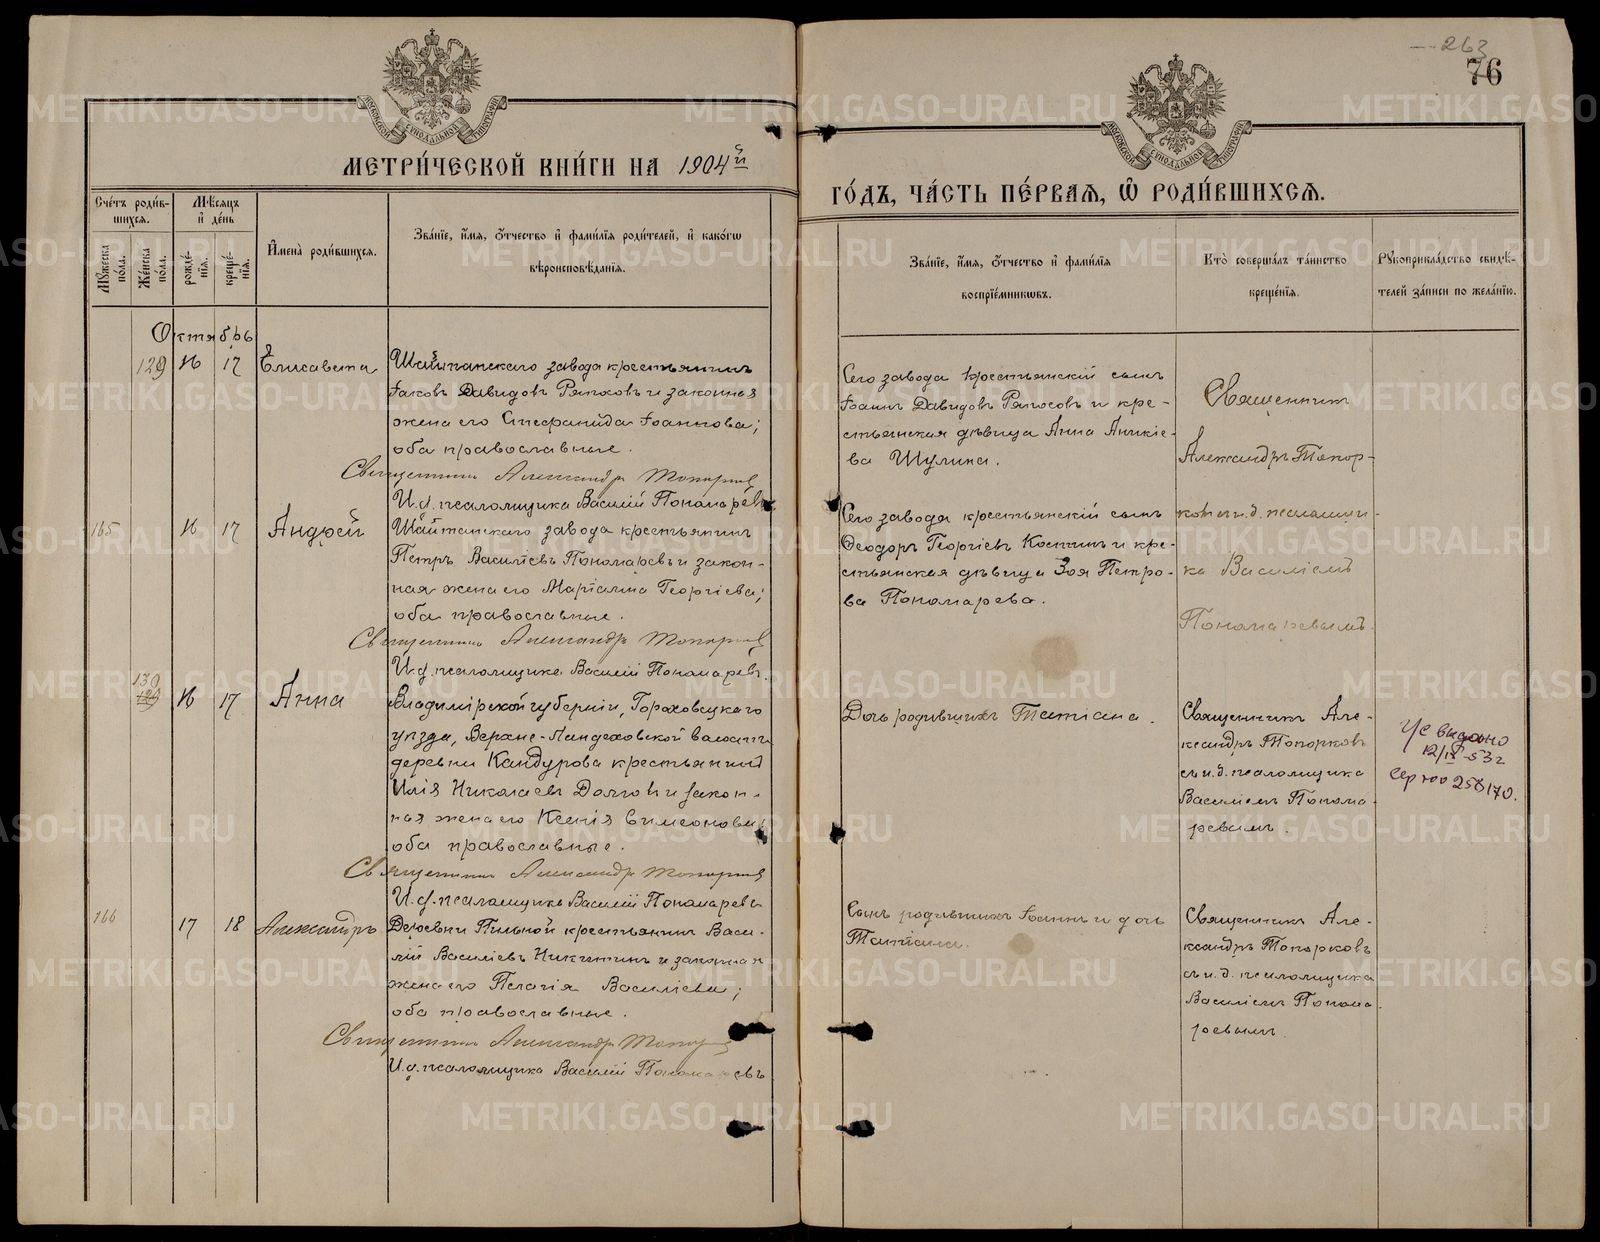 263
76
МОСКОВСКОЙ СѴНОДАЛЬНОЙ ТИПОГРАФІИ
МОСКОВСКОЙ СѴНОДАЛЬНОЙ ТИПОГРАФІИ
МЕТРИ́ЧЕСКОЙ КНИ́ГИ НА 1904й
ГО́ДЪ, ЧА́СТЬ ПЕ́РВАЯ, Ѡ РОДИ́ВШИХСЯ.
Сче́тъ роди́вшихся.
Мѣсяцъ и де́нь
Му́жеска по́ла.
Же́нска по́ла.
рожде́нія.
креще́нія.
Имена̀ роди́вшихся.
Зва́ніе, и́мя, о́тчество и фами́лія роди́телей, и како́гѡ
вѣроисповѣ́данія.
Зва́ніе, и́мя, о́тчество и фами́лія
воспріе́мникѡвъ.
Кто̀ соверша́лъ та́инство
креще́нія.
Рꙋкоприкла́дство свидѣ́-
телей за́писи по жела́нію.
Октябрь
129 16 17 Елисавета
Шайтанскаго завода крестьянинъ
Іаковъ Давидовъ Ряпосовъ и законная
жена его Стефанида Іоаннова;
оба православные.
Священникъ Александръ Топорковъ
И.д. псаломщика Василій Пономаревъ
Сего завода крестьянскій сынъ
Іоаннъ Давидовъ Ряпосовъ и кре-
стьянская дѣвица Анна Аникіе-
ва Шулина.
Священник
Александръ Топор-
ков и и.д. псаломщи-
ка Василіемъ
Пономаревымъ.
165 16 17 Андрей
Шайтанскаго завода крестьянинъ
Петръ Василіевъ Пономаревъ и закон-
ная жена его Маріанна Георгіева;
оба православные.
Священникъ Александръ Топорковъ
И.д. псаломщика Василій Пономаревъ.
Сего завода крестьянскій сынъ
Ѳеодоръ Георгіевъ Костинъ и кре-
стьянская дѣвица Зоя Петро-
ва Пономарева.
130
129 16 17 Анна
Владимірской губерніи, Гороховецкаго
уѣзда, Верхне-Ландеховской волости
деревни Кандурова крестьянинъ
Илія Николаевъ Долговъ и закон-
ная жена его Ксенія Симеонова;
оба православные.
Священникъ Александръ Топорковъ
И.д. псаломщика Василій Пономаревъ
Дочь родившихъ Татіана.
Священникъ Але-
ксандръ Топорковъ
съ и.д. псаломщика
Василіемъ Понома-
ревымъ.
У/с выдано
12/IX-53г
Сер юо 258170.
166 17 18 Александръ
Деревни Пильной крестьянинъ Васи-
лій Василіевъ Никитинъ и законная
жена его Пелагія Василіева;
оба православные.
Священникъ Александръ Топорковъ
И.д. псаломщика Василій Пономаревъ
Сынъ родившихъ Іоаннъ и дочь
Татіана.
Священникъ Але-
ксандръ Топорковъ
съ и.д. псаломщика
Василіемъ Понома-
ревымъ.
METRIKI.GASO-URAL.RU